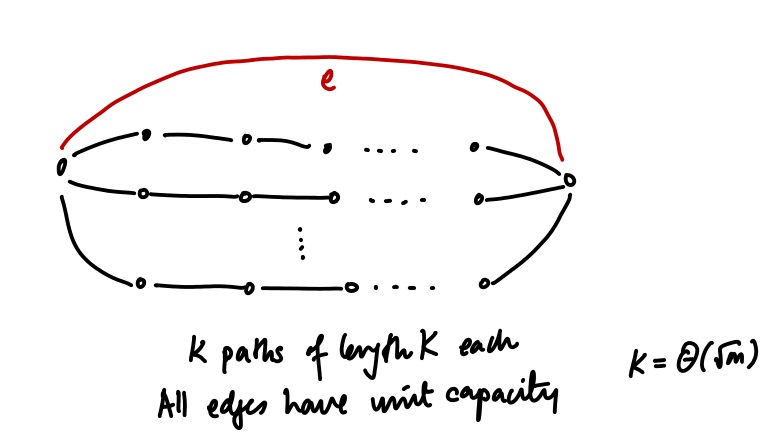 e
K paths of length K each
All edges have unit capacity
K = Θ(√m)